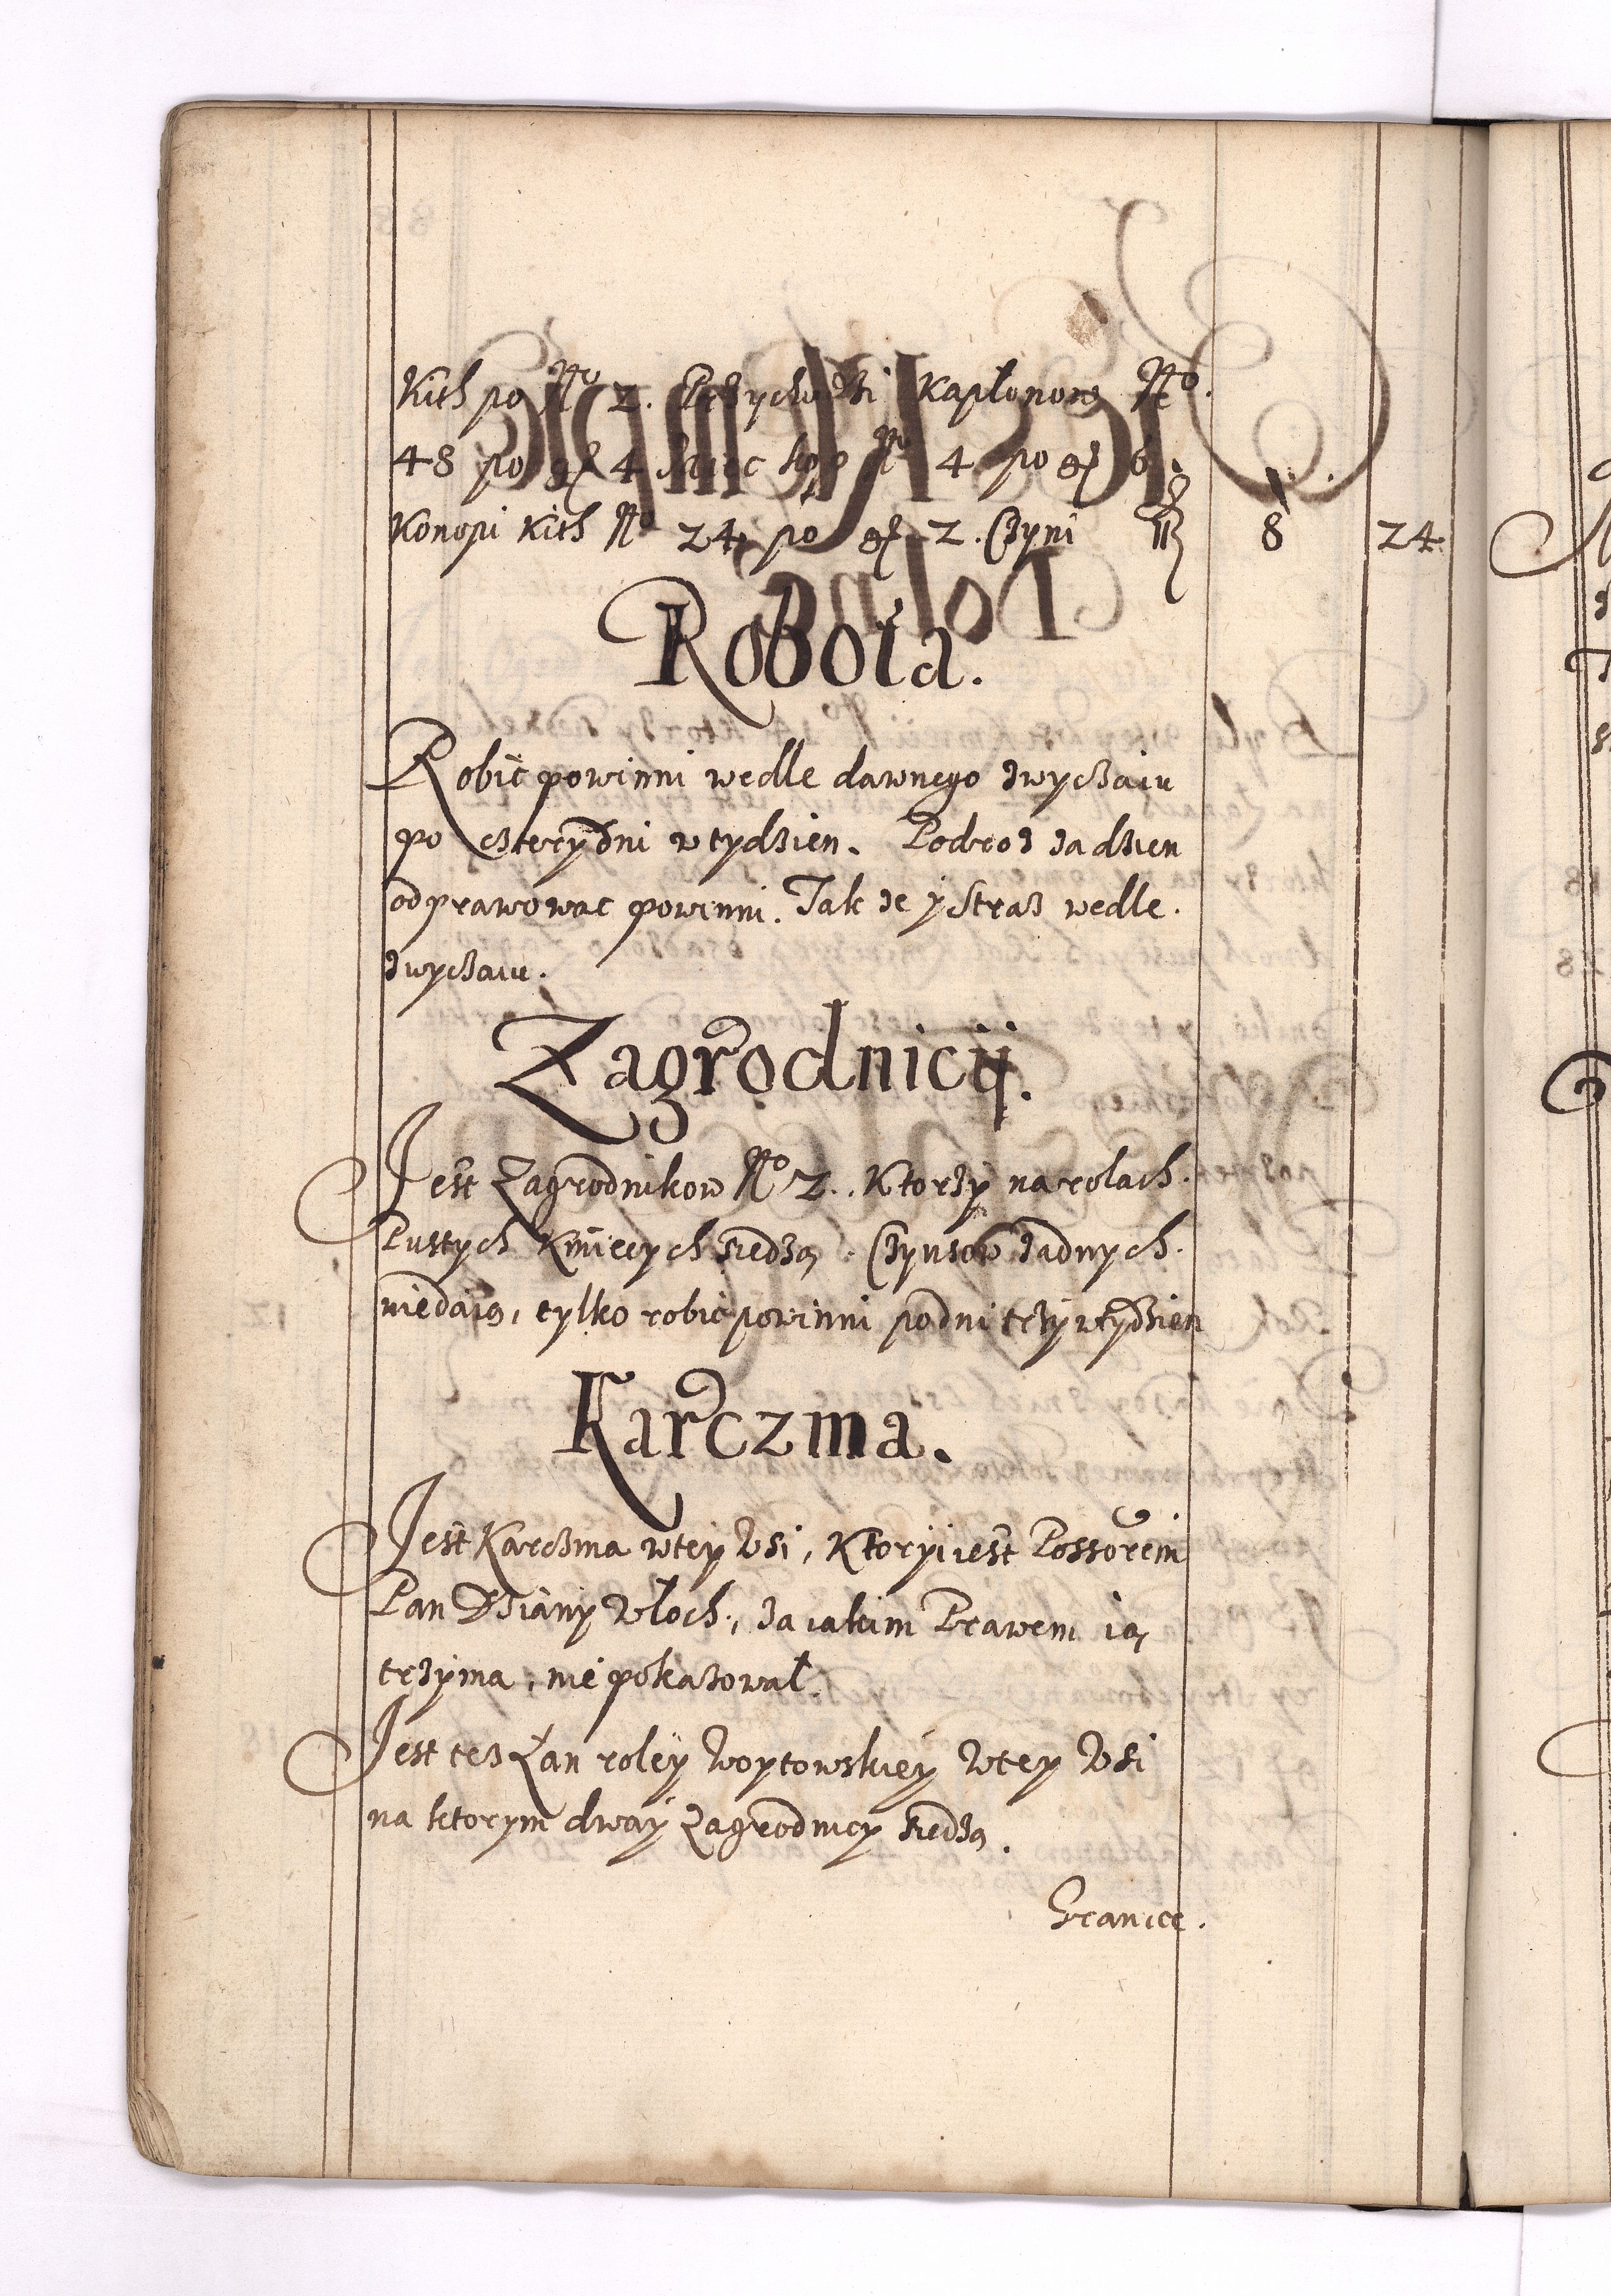 Kith po No 2. Przychodzi Kapłonow No.
48 po gr 4 Jaiec kop No 4 po gr 6.
Konopi Kith No 24 po gr 2. Czyni fl 8 24
Robota.
Robić powinni wedle dawnego zwyczaiu
po cztery dni w tydzien. Podroz za dzien
odprawowac powinni. Tak ze y Straz wedle.
zwyczaiu.
Zagrodnicij.
Jest Zagrodnikow No 2. Ktorzy na rolach.
Pustych Kmiecych siedzą. Czynsow zadnych.
niedaią, tylko robic powinni po dni trzy w tydzien
Karczma.
Jest Karczma w tey Wsi, Ktoryi iest Possorem
Pan Dziany Włoch, za iakim Prawem ią
trzyma, nie pokazował.
Jest tez Łan roley Woytowskiey W tey Wsi
na ktorym dway Zagrodnicy siedzą.
Granice.